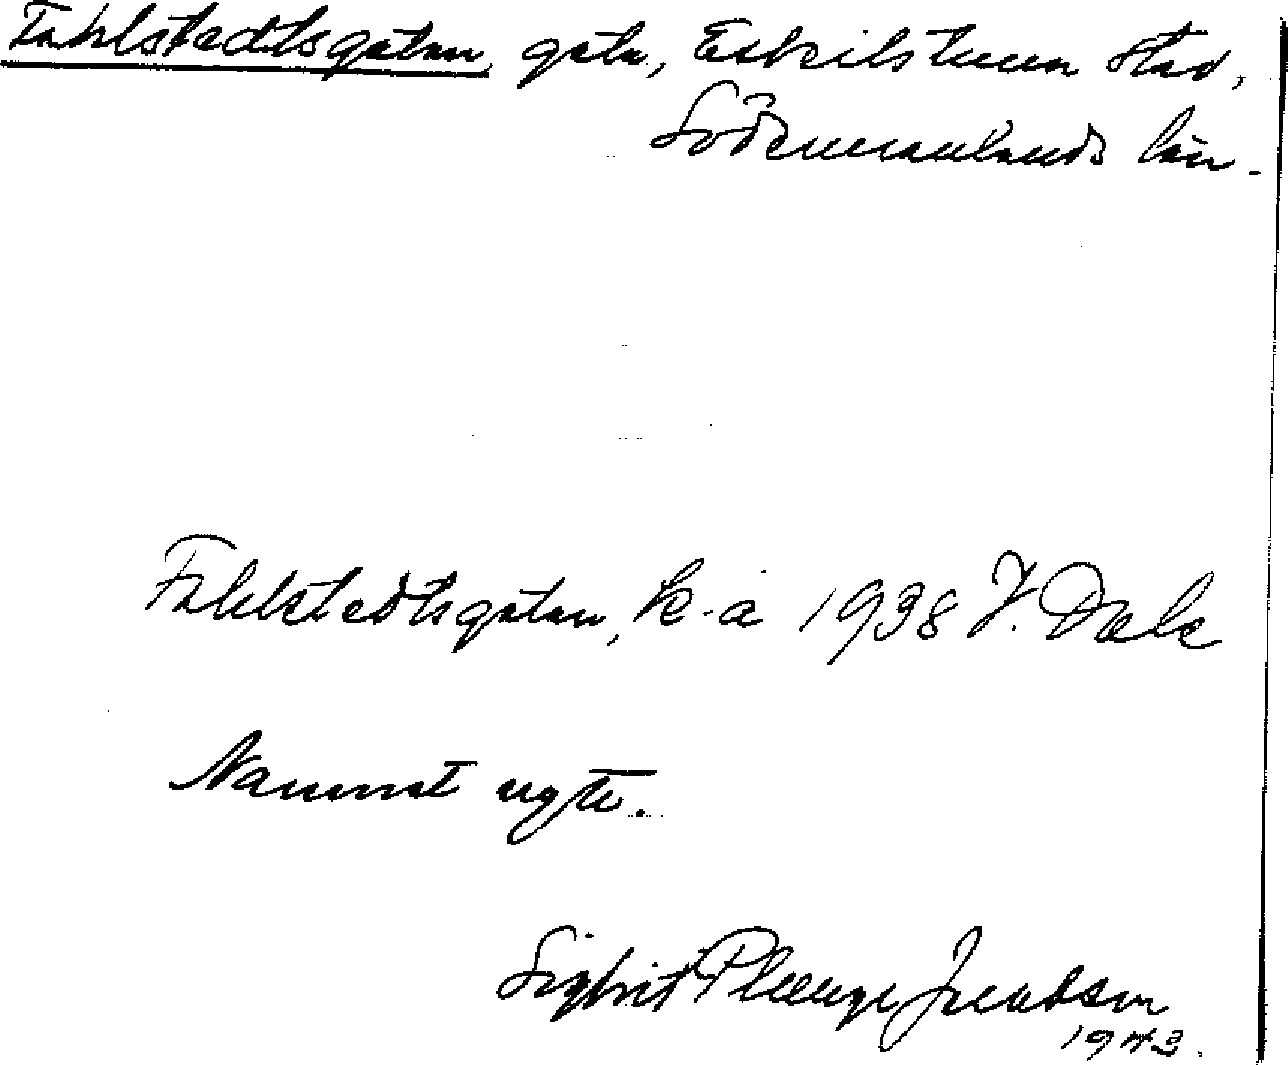 Fahlstedtsgatan, gata, Eskilstuna stad,
Södermanlands län.
Fahlstedtsgatan, k-a 1938 J. Dale
Namnet nytt.
Sigfrid Plenge Jacobson
1943.